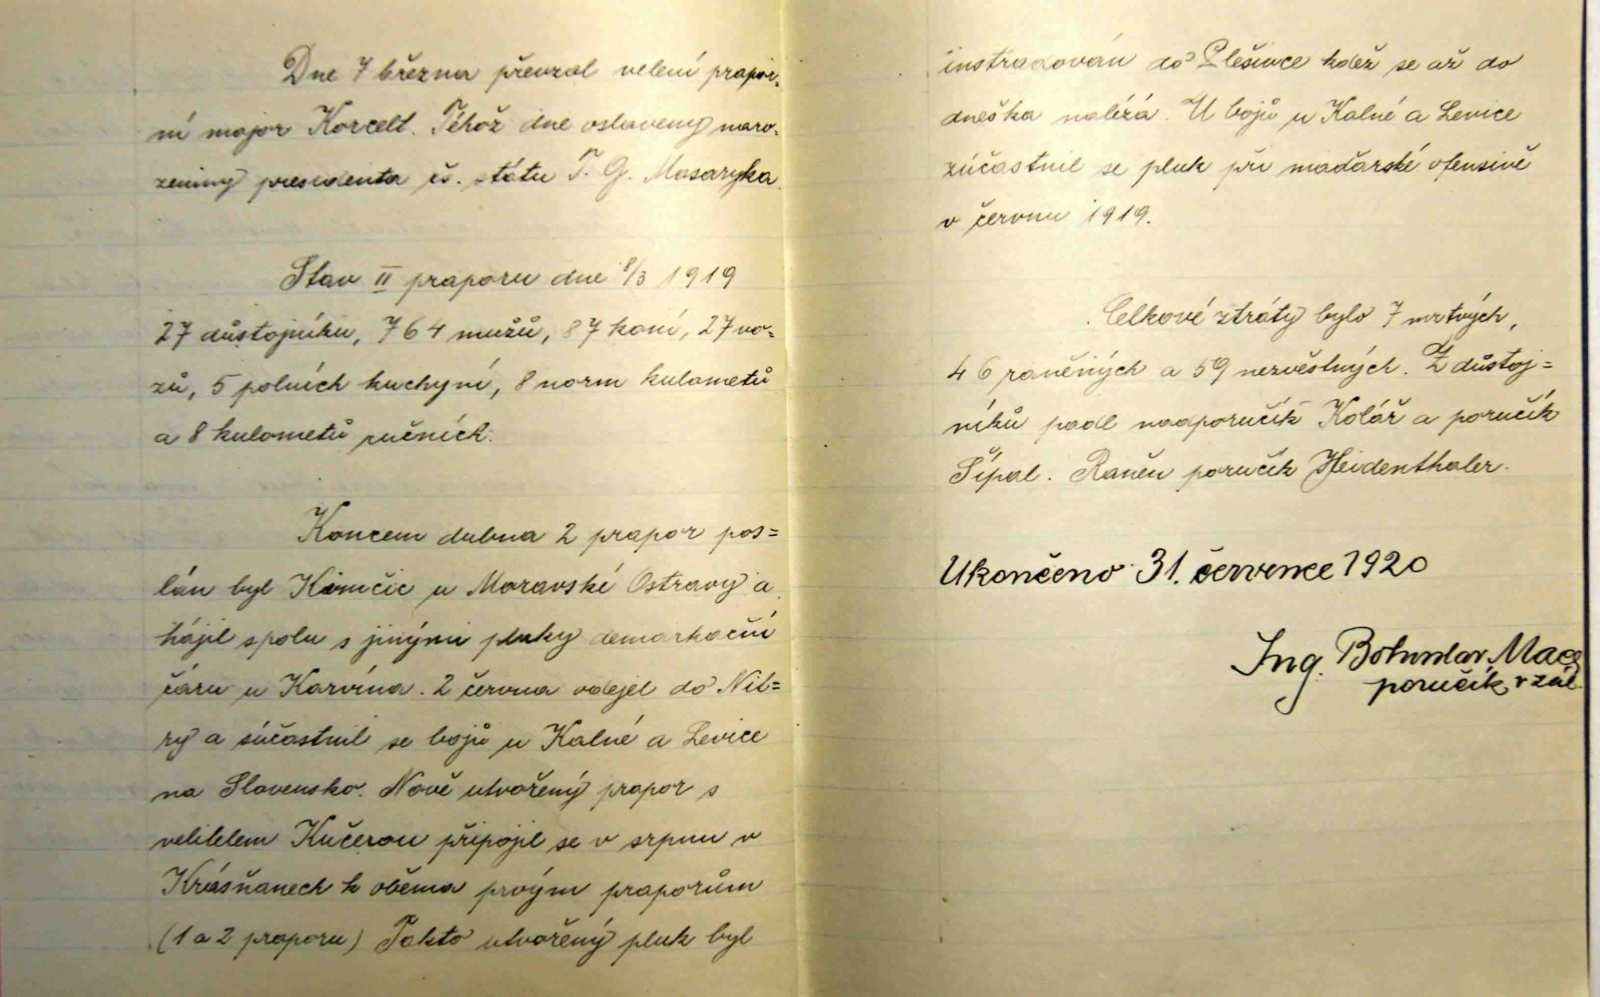 Dne 7 března převzal velení prapor-
ní major Korcelt. Téhož dne oslaveny naro-
zeniny presidenta čs. státu T. G. Masaryka
Stav II praporu dne 8/3 1919
27 důstojníku, 764 mužů, 87 koní, 27 vo-
zů, 5 polních kuchyní, 8 norm kulometů
a 8 kulometů ručních.
Koncem dubna 2 prapor pos=
lán byl Kunčic u Moravské Ostravy a
hájil spolu s jinými pluky demarkační
čáru u Karvína. 2 června odejel do Nit=
ry a súčastnil se bojů u Kalné a Levice
na Slovensko. Nově utvořený prapor s
velitelem Kučerou připojil se v srpnu v
Krásňanech k oběma prvým praporům
(1 a 2 praporu) Takto utvořený pluk byl
instradován do Plešivce kdež se až do
dneška nalézá. U bojů u Kalné a Levice
zúčastnil se pluk při maďarské ofensivě
v červnu 1919.
Celkové ztráty bylo 7 mrtvých,
46 raněných a 59 nezvěstných. Z důstoj=
níků padl nadporučík Kolář a poručík
Šípal. Raněn poručík Heidenthaler.
Ukončeno 31. července 1920
Ing. Bohuslav
poručík v zál.